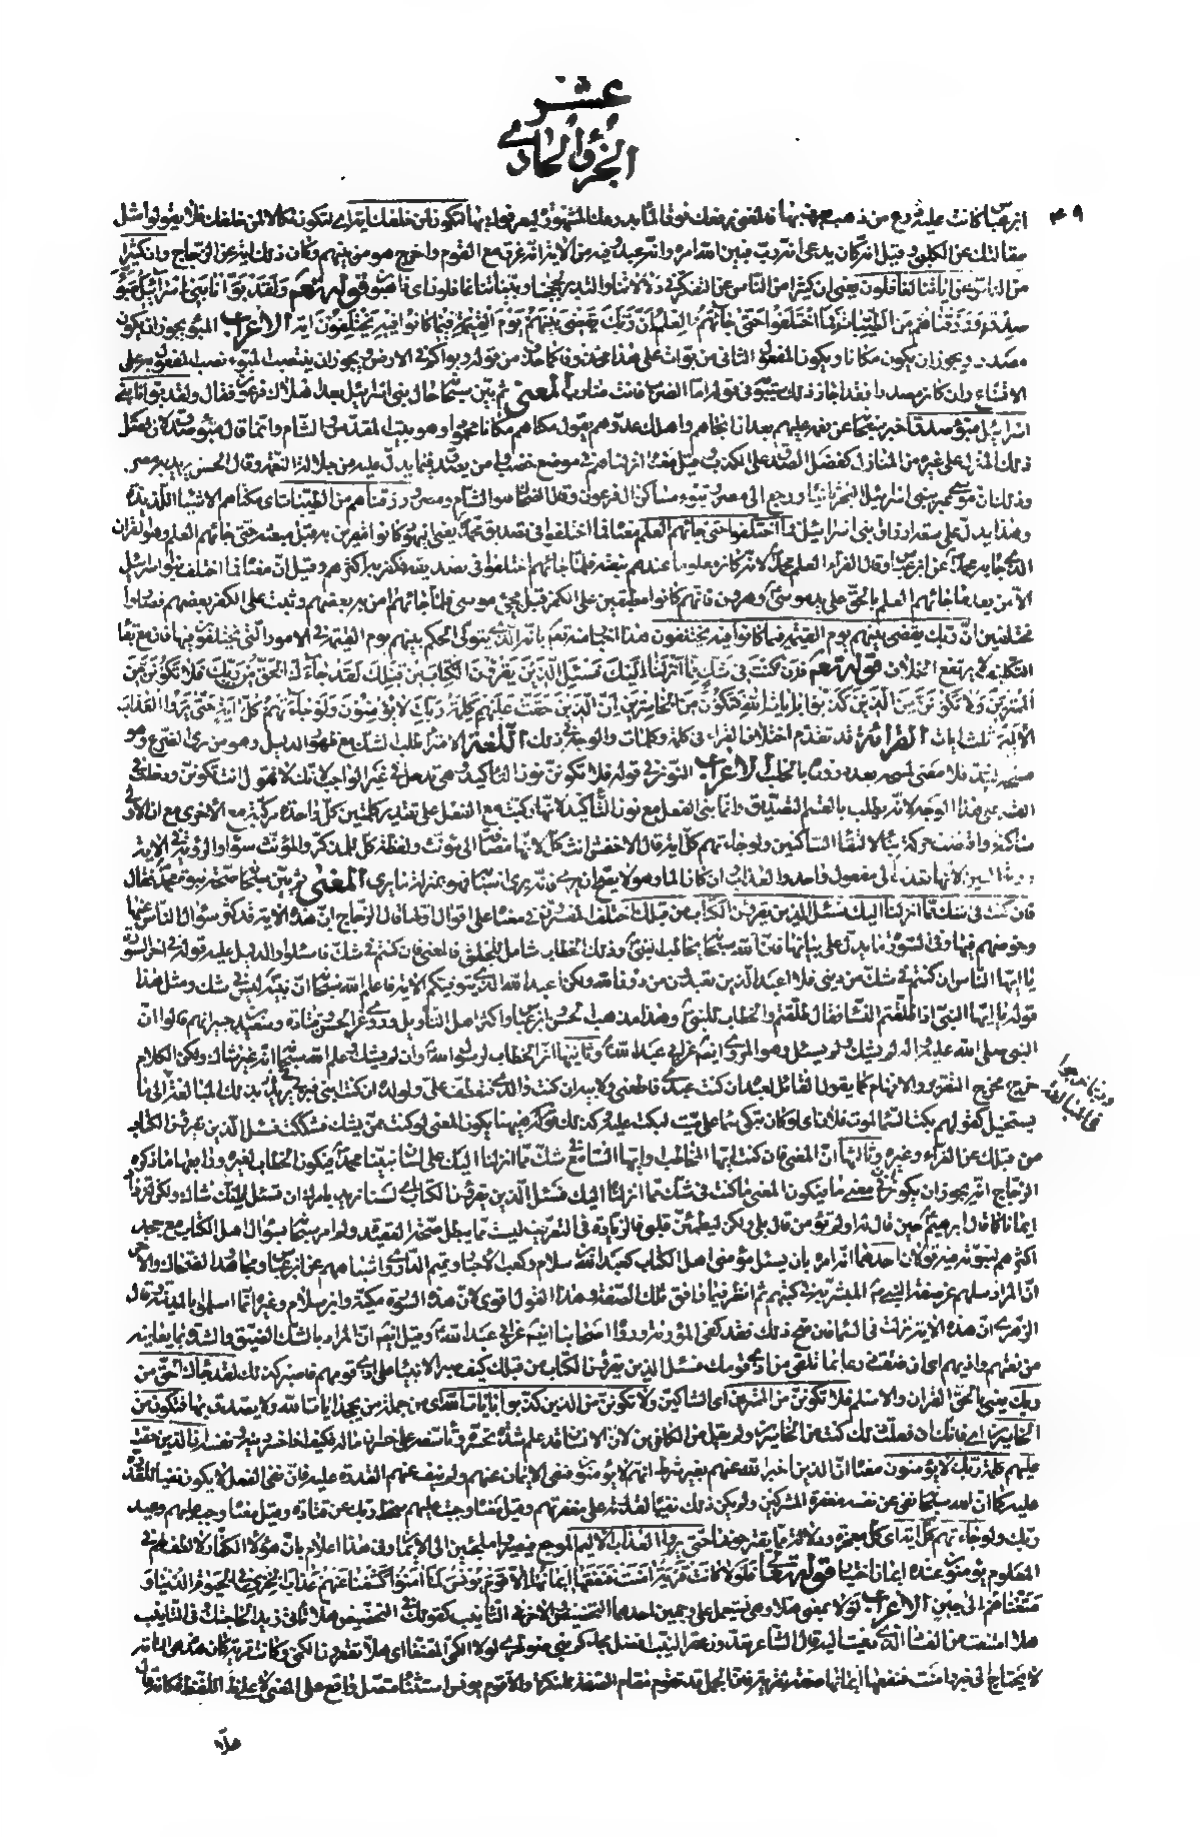 عشر
الجزؤ الحادي
ابن عباس كانت عليه درع من ذهب يعرف بها فالمعنى نرفعك فوق الماء بدرعك المشهورة ليعرفوك بها لتكون لمن خلفك اية اي لتكون نكالا لمن خلفك فلا يقولوا مثل
مقالتك عن الكلبي وقيل انه كان يدعي انه رب فبين الله امره وانه عبد وفيه من الاية انه غرق مع القوم واخرج هو من بينهم وكان ذلك اية عن الزجاج وان كثيرا
من الناس عن اياتنا لغافلون يعني ان كثيرا من الناس عن التفكر في دلالاتنا والتدبر لحججنا وبيناتنا غافلون اي ذاهبون قوله تعالى ولقد بوأنا بني اسرائيل مبوأ
صدق ورزقناهم من الطيبات فما اختلفوا حتى جائهم العلم ان ربك يقضي بينهم يوم القيمة فيما كانوا فيه يختلفون اية الاعراب المبوأ يجوز ان يكون
مصدرا ويجوز ان يكون مكانا ويكون المفعول الثاني من بوأت على هذا محذوفا كما حذف من قوله وبوأكم في الارض ويجوز ان ينتصب المبوأ نصب المفعول به على
الاتساع وان كان مصدرا فقد اجاز ذلك سيبويه في قوله اما الضرب فانت ضارب المعنى ثم بين سبحانه حال بني اسرائيل بعد هلاك فرعون فقال ولقد بوأنا بني
اسرائيل مبوأ صدق اخبر سبحانه عن نعمه عليهم بعد ان انجاهم واهلك عدوهم يقول مكناهم مكانا محمودا وهو بيت المقدس والشام وانما قال مبوأ صدق لان فضل
ذلك المنزل على غيره من المنازل كفضل الصدق على الكذب وقيل معناه انزلناهم في موضع خصب وامن يصدق فيما يدل عليه من جلالة النعمة وقال الحسن يريد به مصر
وذلك ان موسى عبر ببني اسرائيل البحر ثانيا ورجع الى مصر وتبوأ مساكن ال فرعون وقال الضحاك هو الشام ومصر ورزقناهم من الطيبات اي مكناهم الاشياء اللذيذة
وهذا يدل على سعة ارزاق بني اسرائيل فما اختلفوا حتى جائهم العلم معناه فما اختلفوا في تصديق محمد يعني اليهود كانوا مقرين به قبل مبعثه حتى جائهم العلم وهو القران
الذي جاء به محمد عن ابن عباس وقال الفراء العلم محمد لانه كان معلوما عندهم بنعته فلما جائهم اختلفوا في تصديقه فكفر به اكثرهم وقيل ان معناه فما اختلف بنوا اسرائيل
الا من بعد ما جائهم العلم بالحق على يد موسى وهرون فانهم كانوا مطبقين على الكفر قبل مجئ موسى فلما جائهم امن به بعضهم وثبت على الكفر بعضهم فصاروا
مختلفين ان ربك يقضي بينهم يوم القيمة فيما كانوا فيه يختلفون هذا اخبار منه تعالى بانه الذي يتولى الحكم بينهم يوم القيمة في الامور التي يختلفون فيها فان مع بقاء
التكليف لا يرتفع الخلاف قوله تعالى فان كنت في شك مما انزلنا اليك فسئل الذين يقرؤن الكتاب من قبلك لقد جاءك الحق من ربك فلا تكونن من
الممترين ولا تكونن من الذين كذبوا بايات الله فتكون من الخاسرين ان الذين حقت عليهم كلمة ربك لا يؤمنون ولو جاءتهم كل اية حتى يروا العذاب
الاليم ثلث ايات القرائة قد تقدم اختلاف القراء في كلمة وكلمات والوجه في ذلك اللغة الامتراء طلب الشك مع ظهور الدليل وهو من مري الضرع وهو
الاعراب النون في قوله فلا تكونن نون التاكيد
فان كنت في شك مما انزلنا اليك فسئل الذين يقرؤن الكتاب من قبلك اختلف المفسرون في معناه على اقوال اولها قال الزجاج ان هذه الاية قد كثر سؤال الناس عنها
وخوضهم فيها وفي السورة ما يدل على بيانها فان الله سبحانه يخاطب النبي وذلك الخطاب شامل للخلق فالمعنى فان كنتم في شك فاسئلوا والدليل عليه قوله في اخر السورة
يا ايها الناس ان كنتم في شك من ديني فلا اعبد الذين تعبدون من دون الله ولكن اعبد الله الذي يتوفيكم الاية فاعلم الله سبحانه ان نبيه ليس في شك ومثل هذا
قوله يا ايها النبي اذا طلقتم النساء فقال طلقتم والخطاب للنبي وهذا مذهب الحسن وابن عباس واكثر اهل التأويل وروي عن الحسن وقتادة وسعيد بن جبير انهم قالوا ان
النبي صلى الله عليه واله لم يشك ولم يسئل وهو المروي ايضا عن ابي عبد الله وثانيها ان الخطاب لرسول الله وان لم يشك وعلم الله سبحانه انه غير شاك ولكن الكلام
خرج مخرج التقرير والافهام كما يقول القائل لعبده ان كنت عبدي فاطعني ولابيه ان كنت والدي فتعطف علي ولولده ان كنت ابني فبرني يريد بذلك المبالغة
وربما خرجوا
في المبالغة
يستحيل كقولهم بكت السماء لموت فلان اي لو كان تبكي سماء على ميت لبكت عليه وكذلك ههنا يكون المعنى لو كنت ممن يشك فشككت فسئل الذين يقرؤن الكتاب
من قبلك عن الفراء وغيره وثالثها ان المعنى فان كنت ايها المخاطب او ايها السامع في شك مما انزلنا اليك على لسان نبينا محمد فيكون الخطاب لغيره ورابعها ما ذكره
الزجاج انه يجوز ان يكون في معنى ما فيكون المعنى ما كنت في شك مما انزلنا اليك فسئل الذين يقرؤن الكتاب اي لسنا نريد بامرك ان تسئل لانك شاك ولكن لتزداد
ايمانا كما قال ابرهيم حين قال له اولم تؤمن قال بلى ولكن ليطمئن قلبي فالزيادة في التعريف ليست مما يبطل صحة العقيدة وانما امر سبحانه بسؤال اهل الكتاب مع جحد
اكثرهم لنبوته فيه قولان احدهما انه امره بان يسئل مؤمني اهل الكتاب كعبد الله بن سلام وكعب الاحبار وتميم الداري واشباههم عن ابن عباس ومجاهد والضحاك والاخر
ان المراد سلهم عن صفة النبي المبشر به في كتبهم ثم انظر فيما وافق تلك الصفة وهذا القول اقوى لان هذه السورة مكية وابن سلام وغيره انما اسلموا بالمدينة وقال
الزهري ان هذه الاية نزلت في السماء فان صح ذلك فقد كفي المؤونة ورواه اصحابنا ايضا عن ابي عبد الله وقيل ايضا ان المراد بالشك الضيق والشدة بما يعاينه
من تعنتهم واذيهم اي ان ضقت ذرعا بما تلقى من اذى قومك فسئل الذين يقرؤن الكتاب من قبلك كيف صبر الانبياء على اذى قومهم فاصبر كذلك لقد جاءك الحق من
ربك يعني بالحق القران والاسلام فلا تكونن من الممترين اي الشاكين ولا تكونن من الذين كذبوا بايات الله اي من جملة من يجحد ايات الله ولا يصدق بها فتكون من
الخاسرين اي فانك ان فعلت ذلك كنت من الخاسرين ولم يقل من الكافرين لان الانسان قد علم شدة تحسره وتأسفه على خسران ماله فكيف اذا خسر دينه ونفسه ان الذين حقت
عليهم كلمة ربك لا يؤمنون معناه ان الذين اخبر الله عنهم بغير شرط انهم لا يؤمنون فنفى الايمان عنهم ولم ينف عنهم القدرة عليه فان نفي الفعل لا يكون نفيا للقدرة
عليه كما ان الله سبحانه نفى عن نفسه مغفرة المشركين ولم يكن ذلك نفيا لقدرته على مغفرتهم وقيل معناه وجب عليهم سخط ربك عن قتادة وقيل معناه وجب عليهم وعيد
ربك ولو جاءتهم كل اية اي كل معجزة ودلالة مما يقترحونها حتى يروا العذاب الاليم الموجع فيصيروا ملجئين الى الايمان وفي هذا اعلام بان هؤلاء الكفار لا لطف لهم في
المعلوم يؤمنون عنده ايمانا اختيارا قوله تعالى فلولا كانت قرية امنت فنفعها ايمانها الا قوم يونس لما امنوا كشفنا عنهم عذاب الخزي في الحيوة الدنيا و
متعناهم الى حين الاعراب لولا بمعنى هلا وهي تستعمل على وجهين احدهما التحضيض والاخر التأنيب كقولك في التحضيض هلا تأتي زيدا لحاجتك وفي التأنيب
هلا امتنعت من الفساد الذي دعيت اليه قال الشاعر تعدون عقر النيب افضل مجدكم بني ضوطرى لولا الكمي المقنعا اي هلا تعقرون الكمي وكانت قرية كان هذه هي التامة
لا يحتاج الى خبر امنت فنفعها ايمانها
هلا